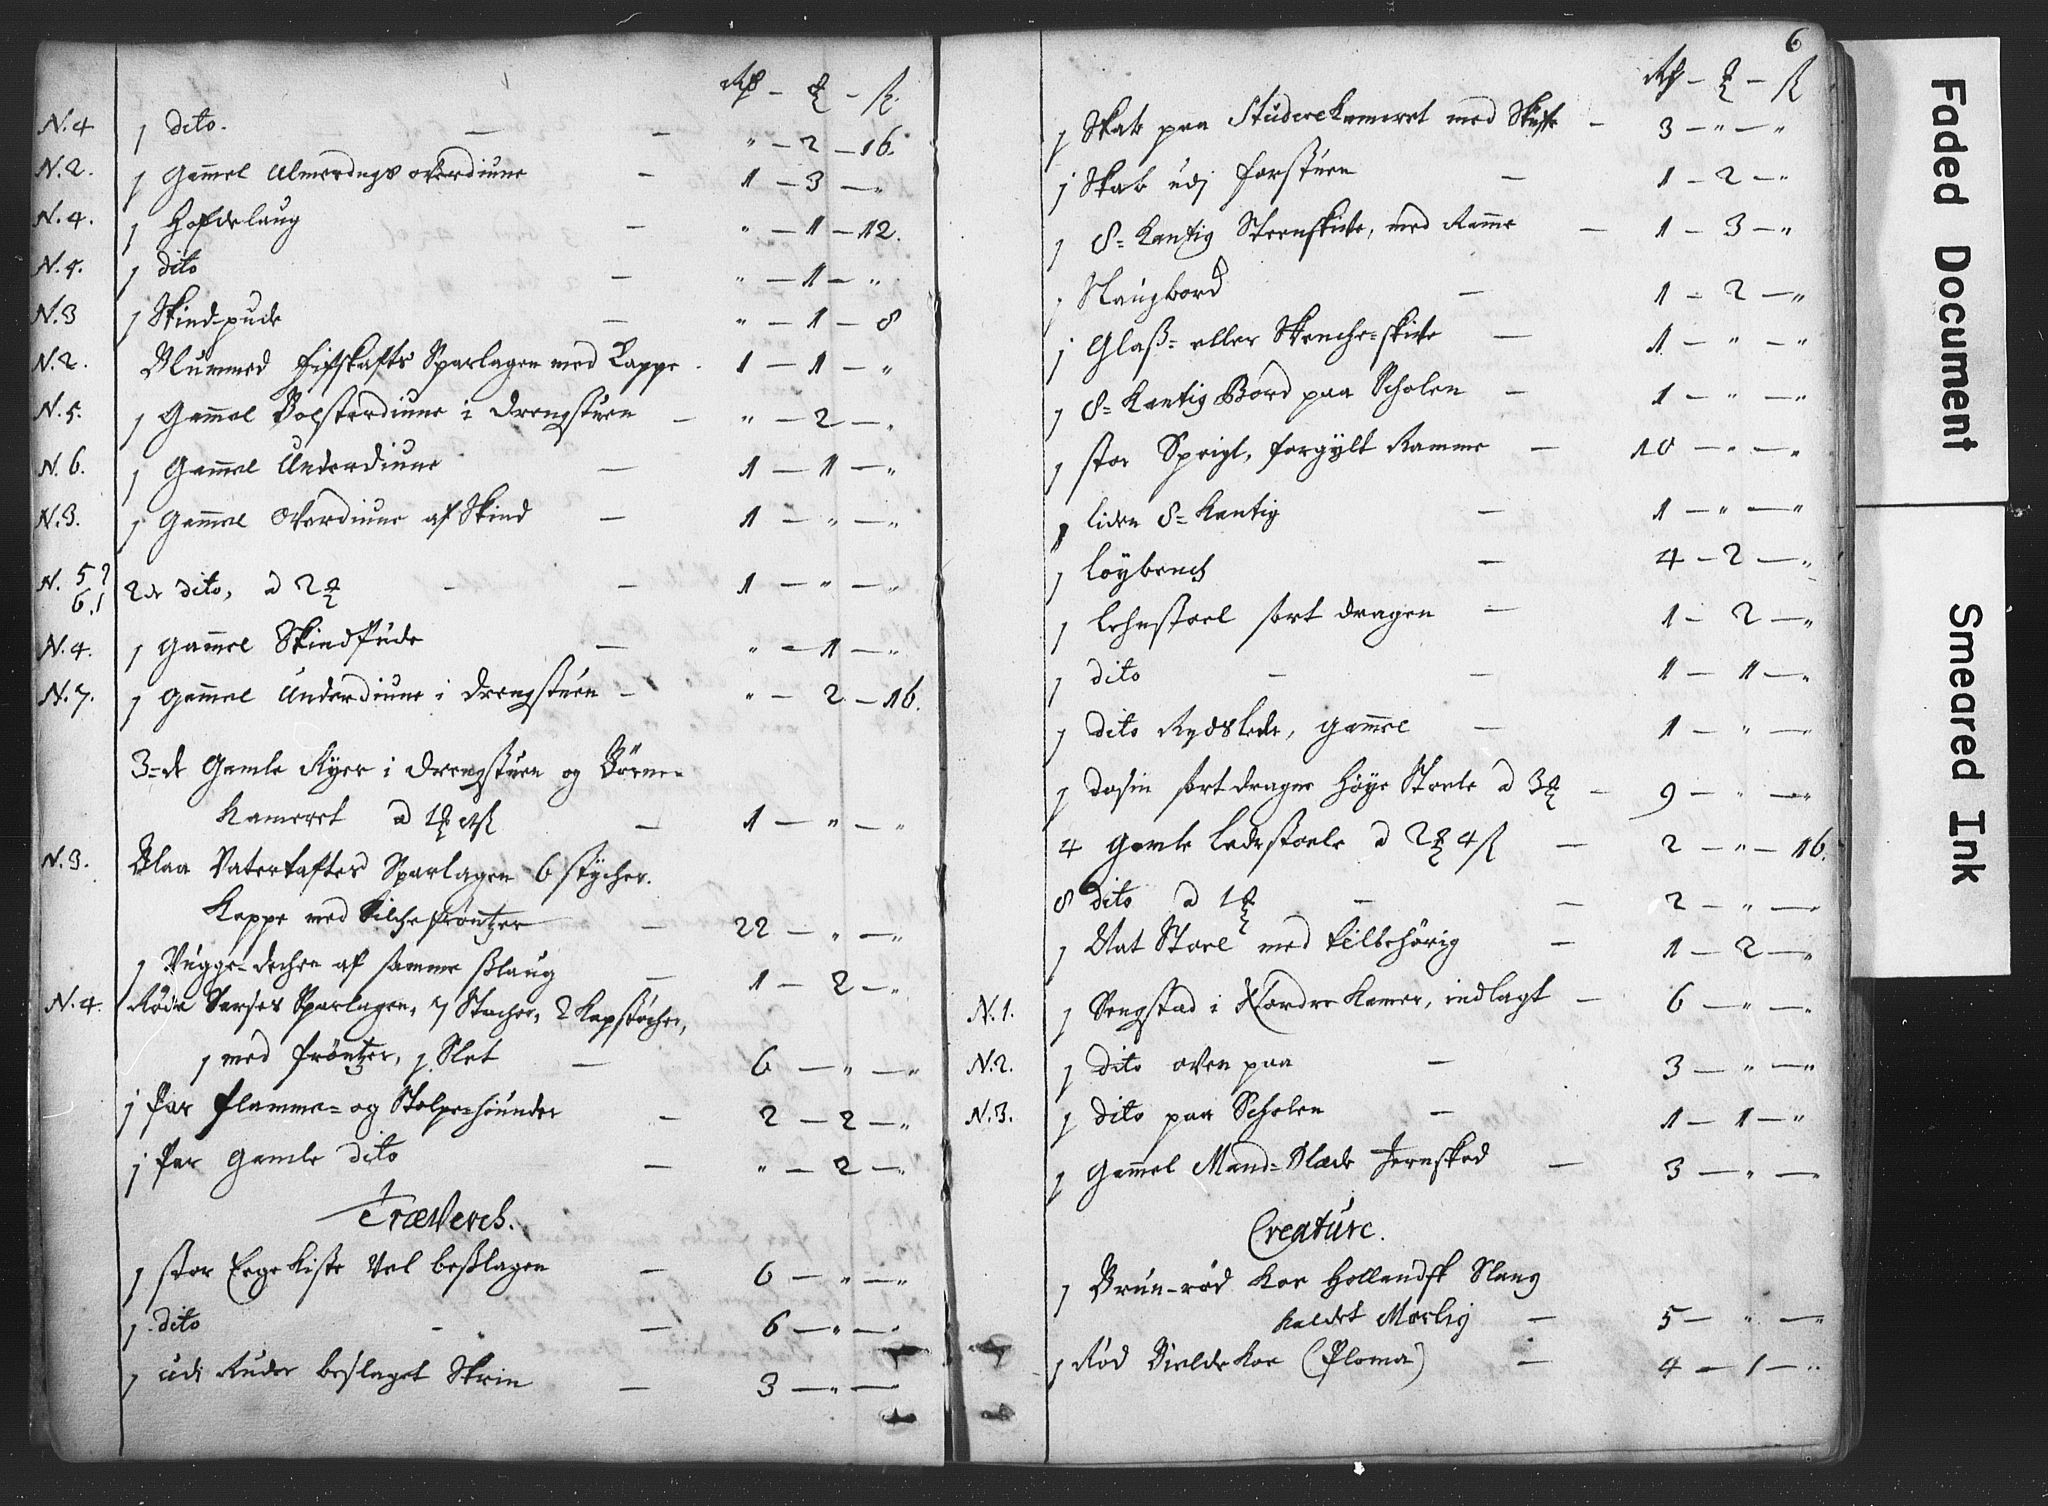 Rd – ort – ß.
N. 4 1 dito. – „ – 2 – 16.
N. 2. 1 Gammel Ulmerdugs overdiune – 1 – 3 – „
N. 4. 1 Hofdelaug – „ – 1 – 12.
N. 5. 1 dito – „ – 1 – „
N. 3 1 Skindpude – „ – 1 – 8
N. 2. Blummed fifskafts Sparlagen med Kappe – 1 – 1 – „
N. 5. 1 Gammel Bolsterdiune i Drengstuen – „ – 2 – „
N. 6. 1 Gammel Underdiune – 1 – 1 – „
N. 3. 1 Gammel Overdiune af Skind – 1 – „ – „
N. 5 6. 2de dito, a 2 ort – 1 – „ – „
N. 4. 1 Gammel SkindPude – „ – 1 – „
N. 7. 1 Gammel Underdiune i Drengstuen – „ – 2 – 16.
3=de Gamle Ryer i Drengstuen og Börne=
Kameret a 1 ort 8 ß – 1 – „ – „
N. 3. Blaa Vatertaftes Sparlagen 6 stycher.
Kappe med Silchefröntzer – 22 – „ – „
1 Vugge-dechen af samme sslaug – 1 – 2 – „
N. 4. Röde Sarses Sparlagen, 7 Stacher, 2 Kapstöcher,
1 med fröntzer, 1 Slet – 6 – „ – „
1 Par flamme= og Stolpe=hiunder – 2 – 2 – „
1 Par Gamle dito – „ – 2 – „
TræVerch.
1 stor Eege Kiste Vel besslagen – 6 – „ – „
1 dito – 6 – „ – „
1 udi Ruder beslaget Skrin – 3 – „ –
6
Rd – ort – ß
1 Skab paa StudereKameret med – 3 – „ – „
1 Skab udj forstuen – 1 – 2 – „
1 8=Kantig Steenskive, med Ramme – 1 – 3 – „
1 Slaugbord – 1 – 2 – „
1 Glaß= eller Skenche=skive – 1 – „ – „
1 8=Kantig Bord paa Scholen – 1 – „ – „
1 stor Speigl, forgylt Ramme – 10 – „ – „
1 liden 8=Kantig – 1 – „ – „
1 löybench – 4 – 2 – „
1 Lehnstoel sort dragen – 1 – 2 – „
1 dito – 1 – 1 – „
1 dito Rydslede, gammel – 1 – „ –
1 dosin sortdragne høye Stoele a 3 ort – 9 – „ – „
4 gamle Ledestoele a 2 ort 4 ß – 2 – „ – 16.
8 dito a 1 ort – 2 – „ –
1 Nat Stoel med tilbehörig – 1 – 2 – „
N. 1. 1 Sengstad i Nordre Kamer, indlagt – 6 – „ – „
N. 2. 1 dito oven paa – 3 – „ – „
N. 3. 1 dito paa Scholen – 1 – 1 – „
1 Gammel Mand=Slæde Jernskod – 3 – „ –
Creature.
1 Brun-röd Koe Hollandsk Slaug
kaldet Morlig – 5 – „ –
1 Röd Bielde Koe (Ploma) – 4 – 1 – „
Faded Document
Smeared Ink